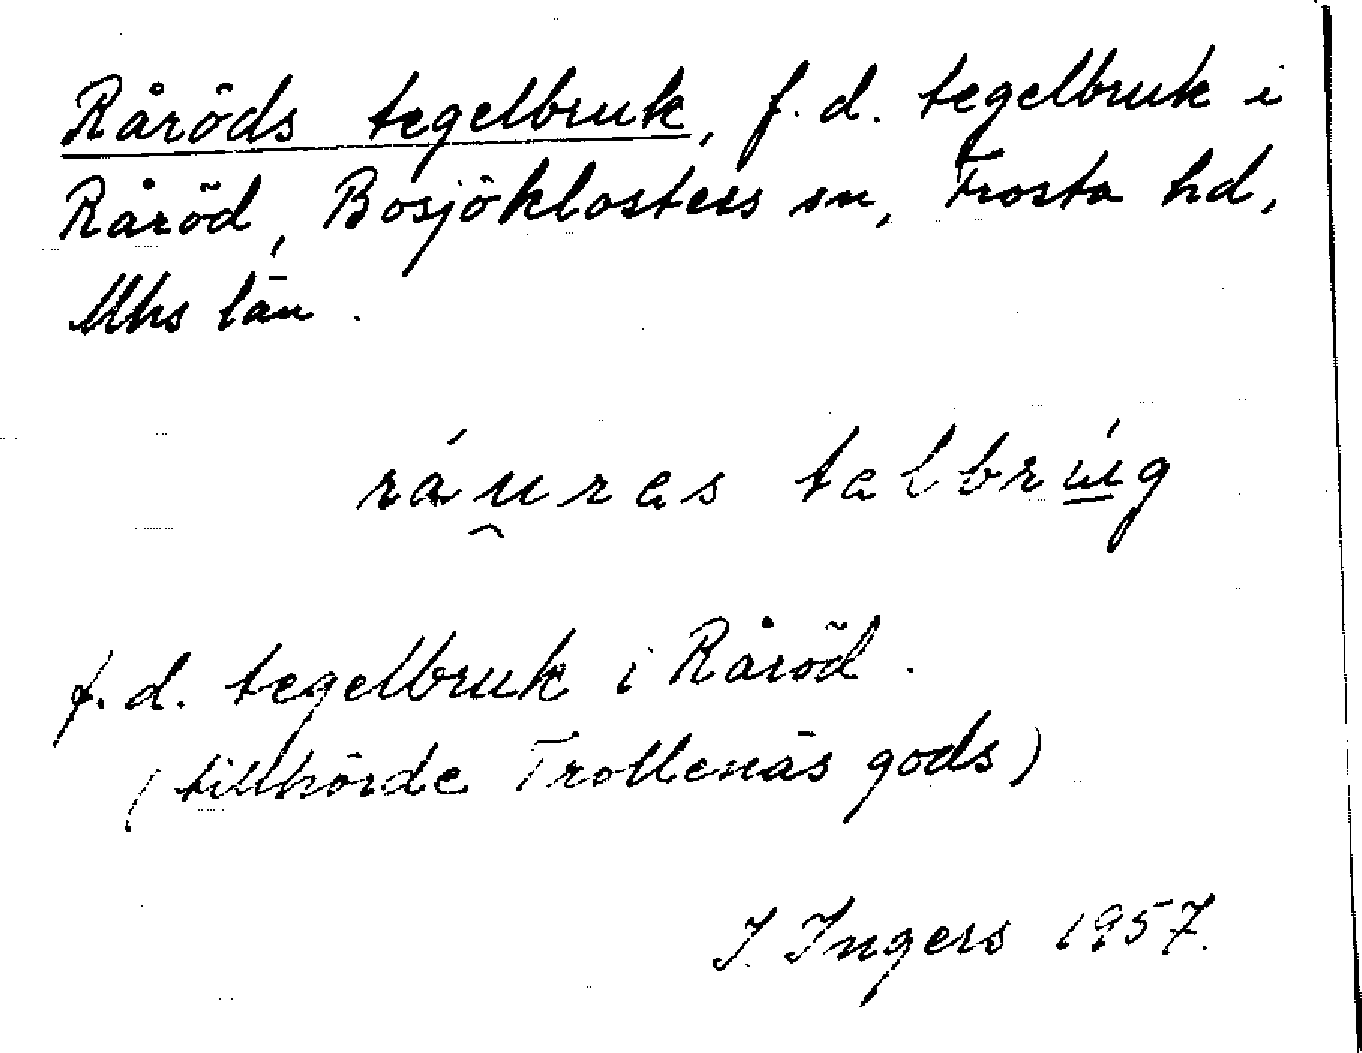 Råröds tegelbruk, f.d. tegelbruk i
Råröd, Bosjöklosters sn, Frosta hd,
Mhs län.
ráu̯ras talbrú̲g
f.d. tegelbruk i Råröd.
(tillhörde Trollenäs gods)
I. Ingers 1957.